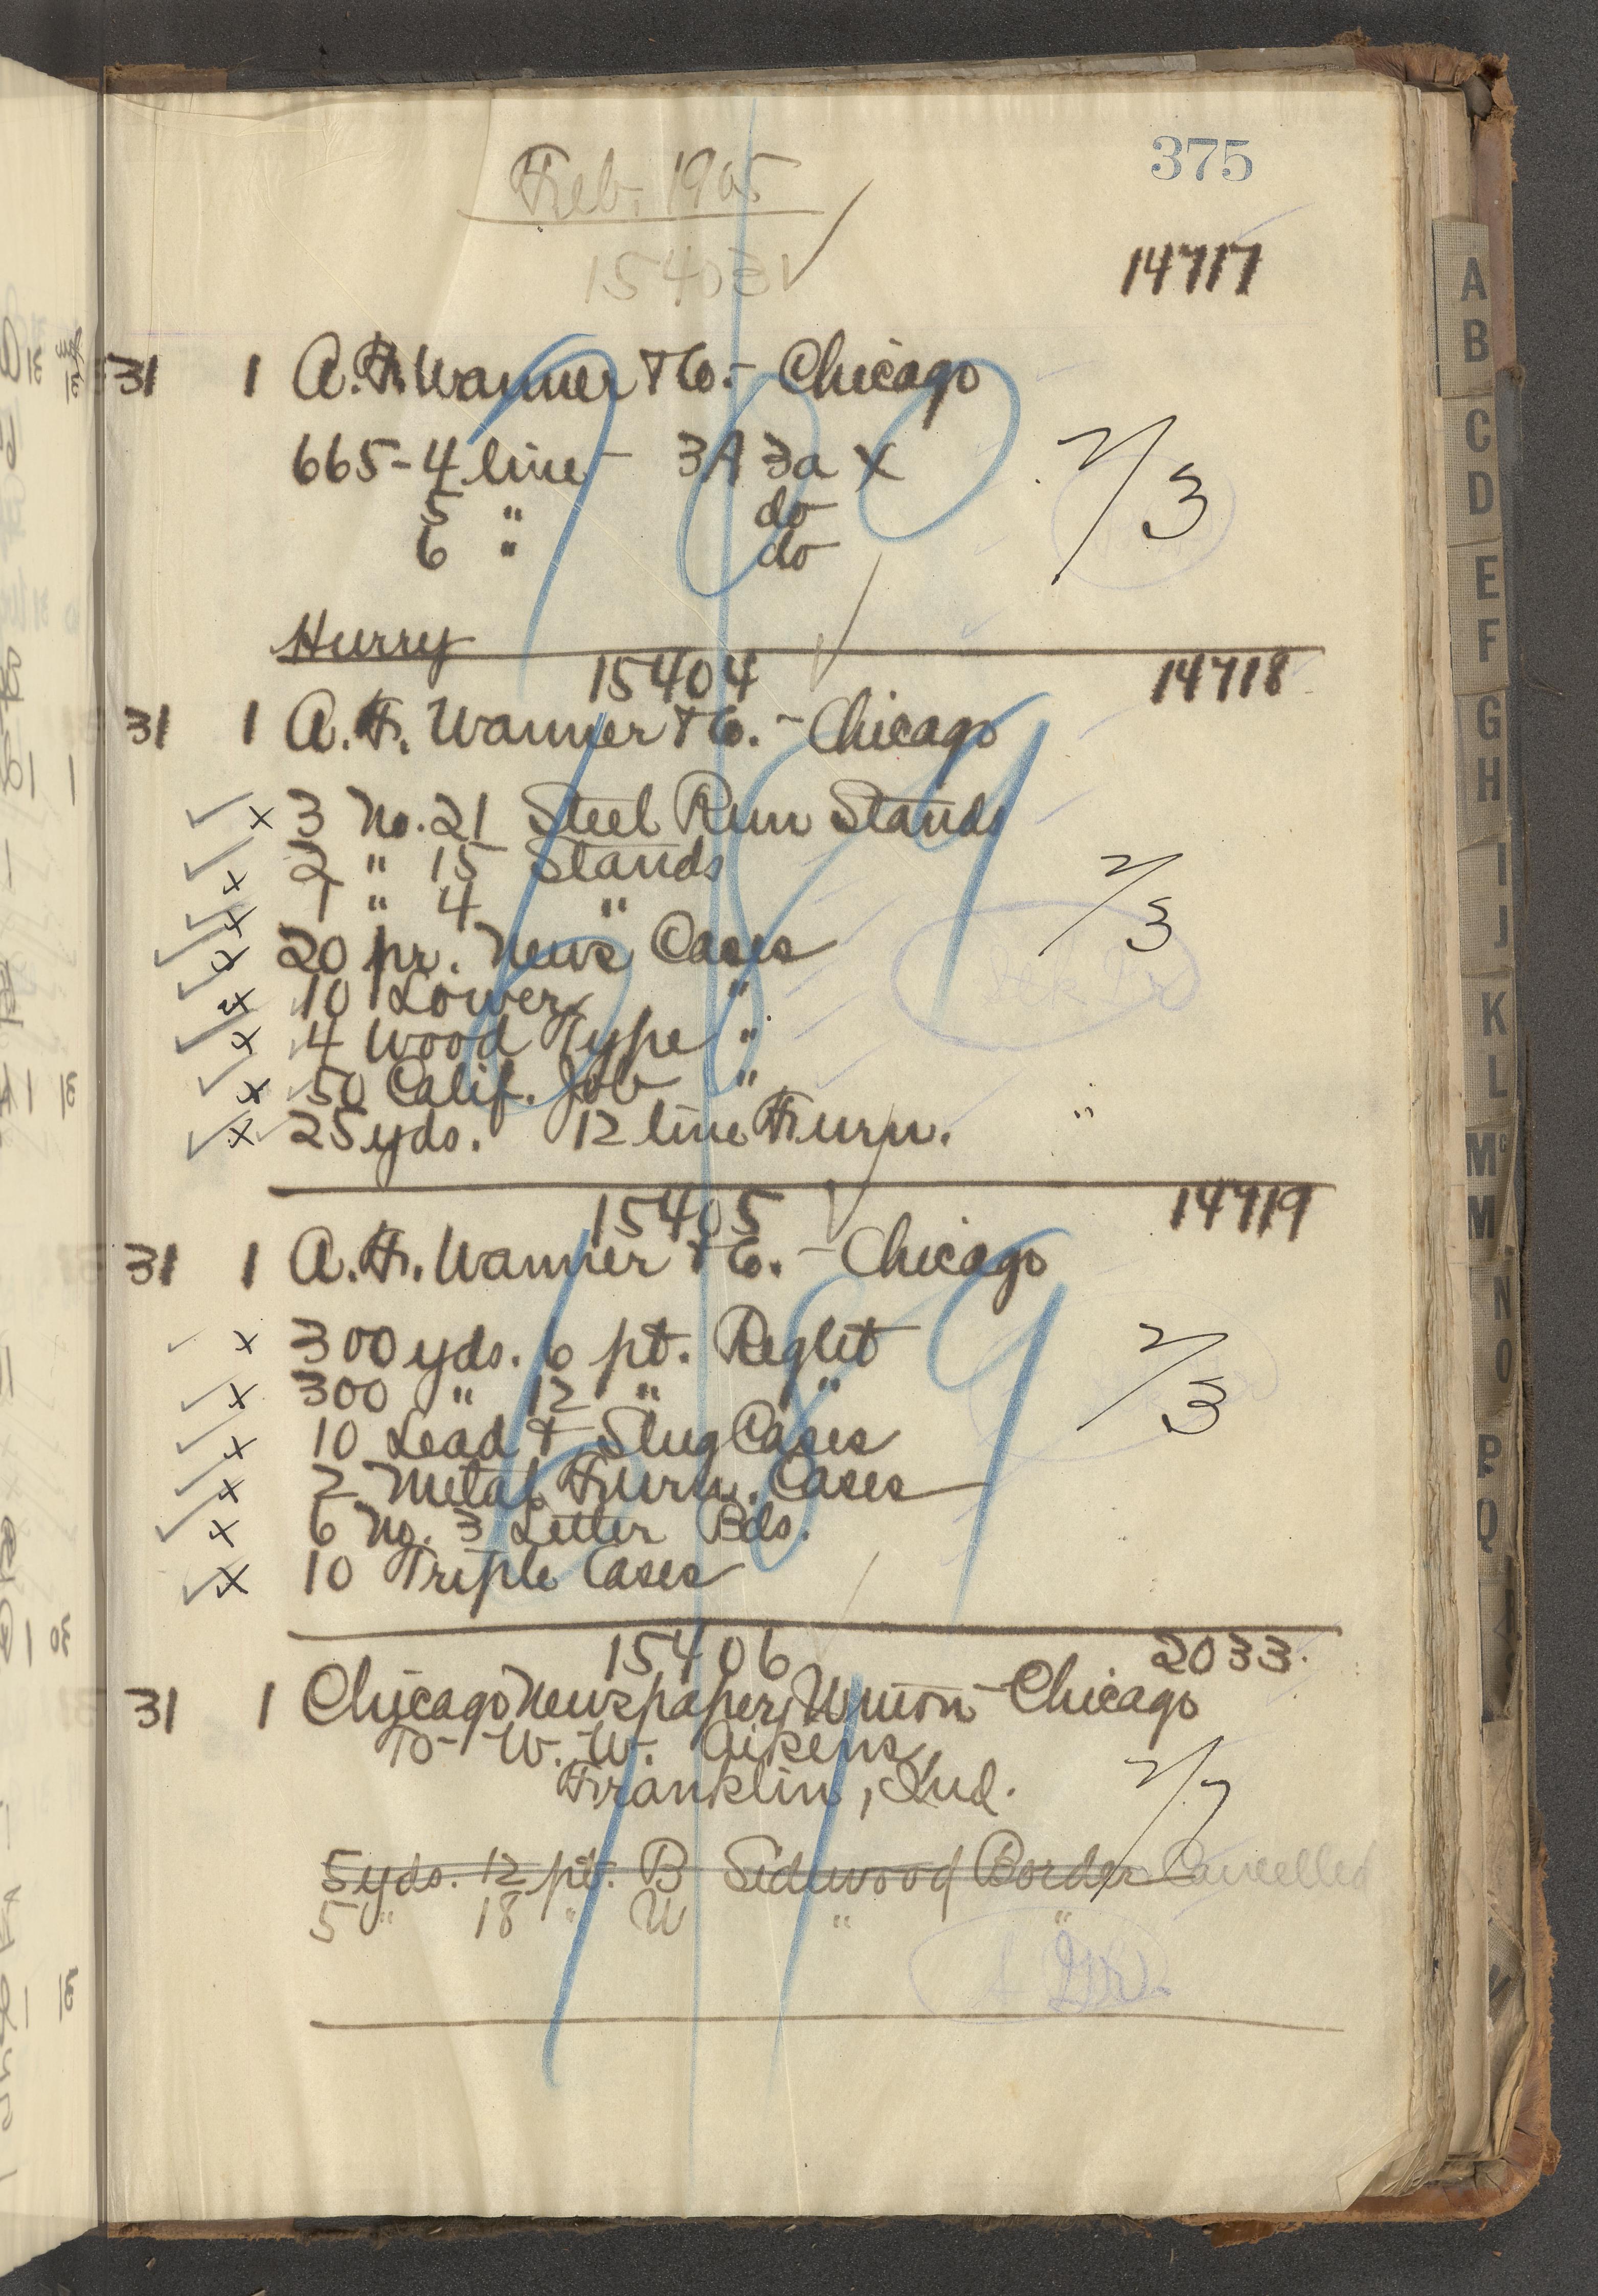 375
Feb. 1905
15403 ✓
14717
31 1 A. F. Wanner & Co. - Chicago
665 - 4 line - 3A 3a X
5 " do
6 " do
2/3
Hurry
15404 ✓ 14718
31 1 A. F. Wanner & Co. - Chicago
✓ x 3 No. 21 Steel Run Stands
✓ x 2 " 15 Stands
✓ x 1 " 4 "
2/3
✓ x 20 pr. News Cases
✓ x 10 Lower "
✓ x 4 Wood Type "
✓ x 50 Calif. Job "
✓ x 25 yds. 12 line Furn.
15405 ✓ 14719
31 1 A. F. Wanner & Co. - Chicago
✓ x 300 yds. 6 pt. Reglet
✓ x 300 " 12 " "
2/3
✓ x 10 Lead & Slug Cases
✓ x 2 Metal Furn. Cases
✓ x 6 No. 3 Letter Bds.
✓ x 10 Triple Cases
15406 ✓ 2033
31 1 Chicago Newspaper Union - Chicago
To - W. W. Aikens
Franklin, Ind.
2/7
5 yds. 12 pt. B Sidewood Border Cancelled
5 " 18 " W " "
A
B
C
D
E
F
G
H
I
J
K
L
Mc
M
N
O
P
Q